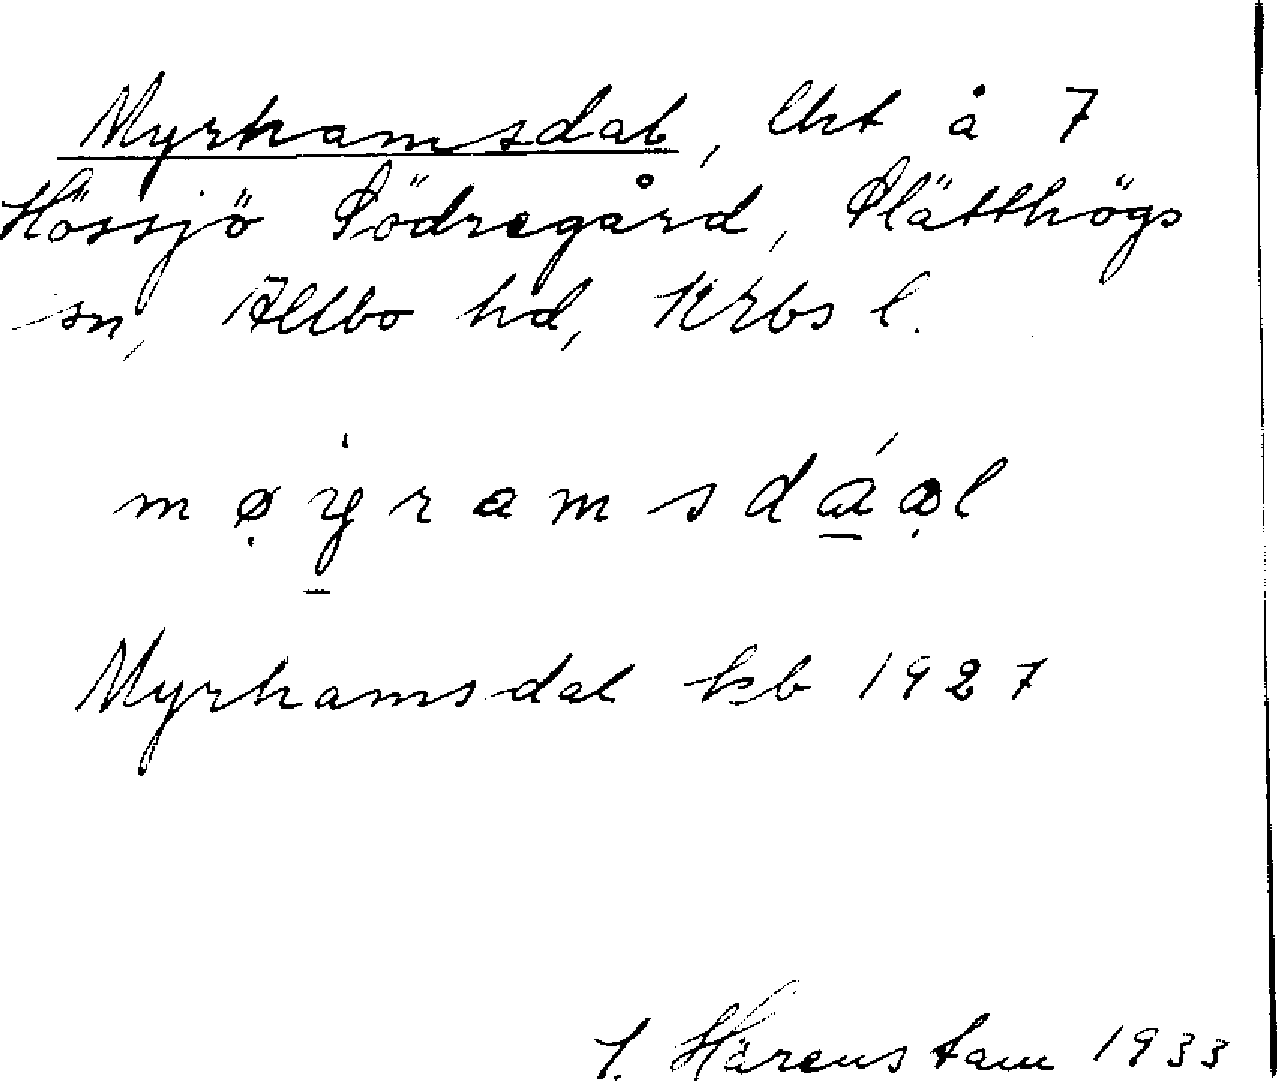 Myrhamsdal, lht å 7
Hössjö Södregård, Slätthögs
sn, Allbo hd, Krbs l.
møyramsdáal
Myrhamsdal kb 1927
Härenstam 1933